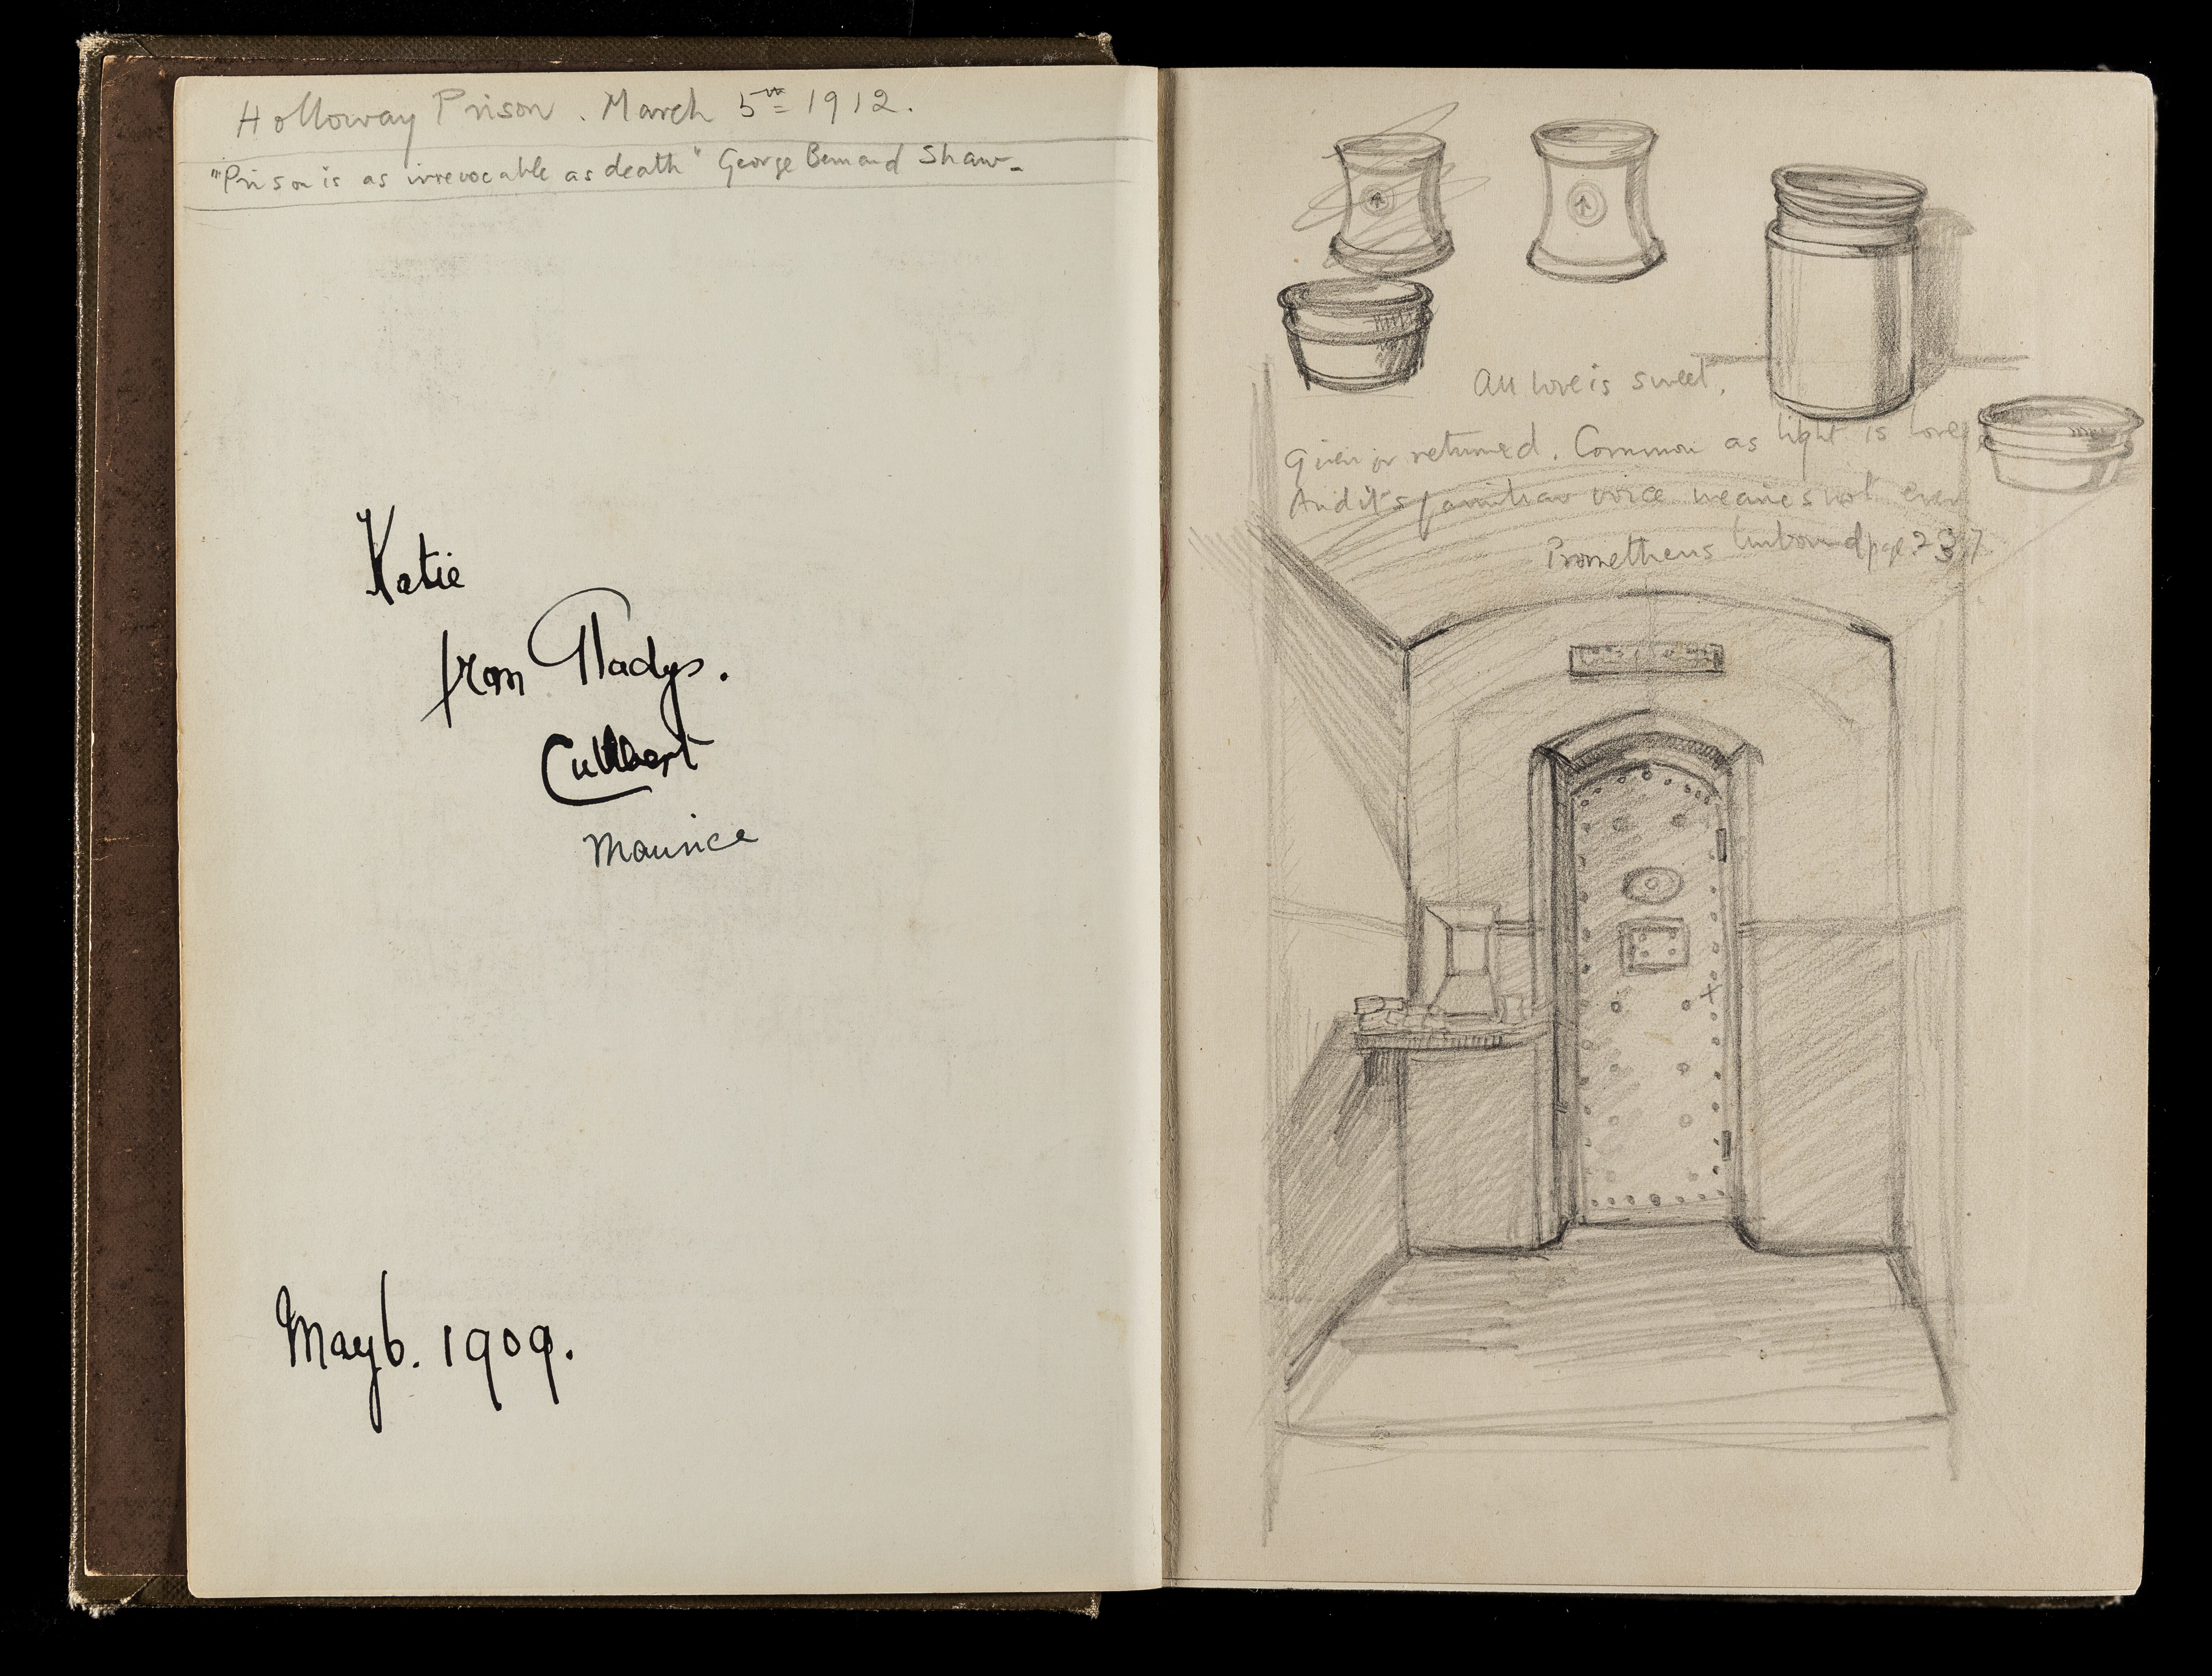 Holloway Prison. March 5th 1912.
"Prison is as irrevocable as death" George Bernard Shaw-
Katie
from Gladys.
Cuthbert
Maurice
May 6. 1909.
All love is sweet,
Given or returned. Common as light is love
And it's familiar voice wearies not ever
Prometheus Unbound page. 237